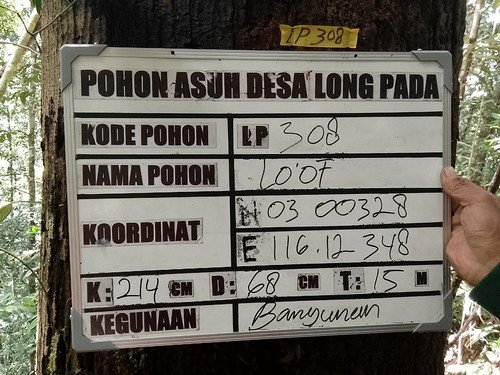 LP 308
POHON ASUH DESA LONG PADA
KODE POHON LP 308
NAMA POHON LO'OF
KOORDINAT N 03 00328
E 116.12 348
K: 214 CM D: 68 CM T: 15 M
KEGUNAAN Bangunan